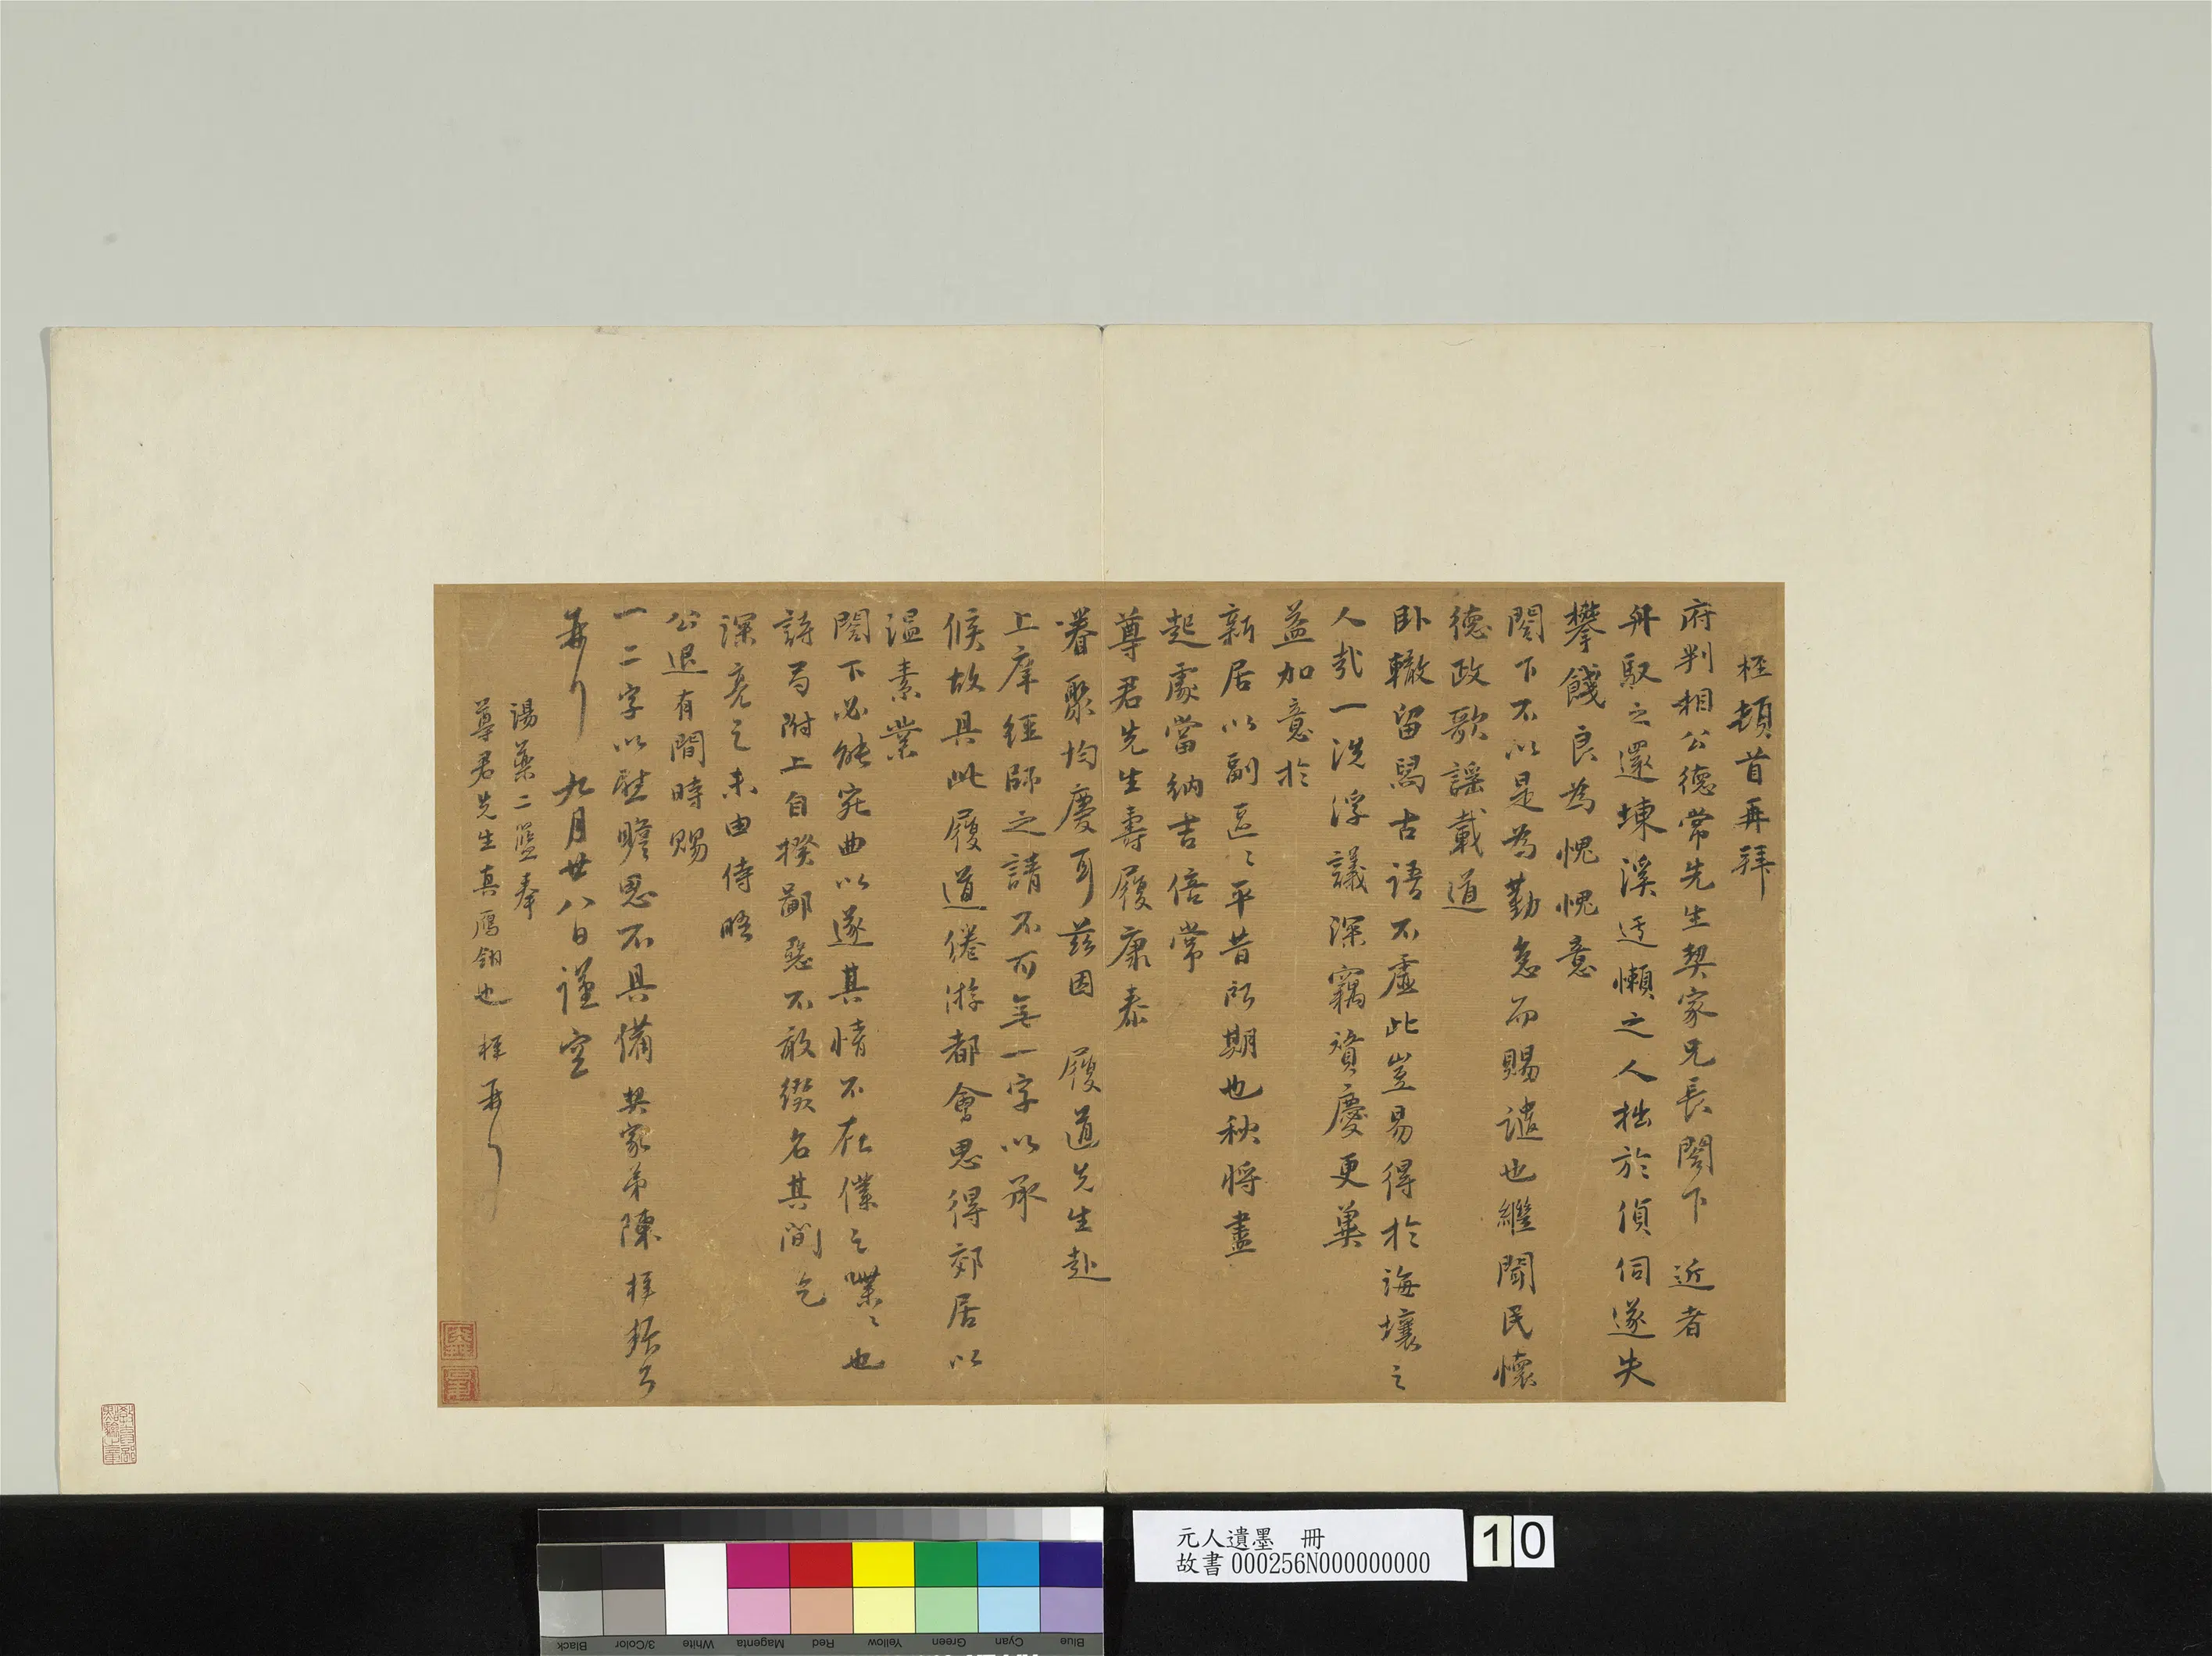 柽頓首再拜
府判相公德常先生契家兄長閣下　近者
舟馭之還埬溪迂懶之人拙於偵伺遂失
攀餞良為愧愧意
閤下不以是為勤怠而賜譴也繼聞民懷
德政歌謠載道
臥轍留舄古語不虛此豈易得於海壤之
人哉一洗浮議深竊賛慶更冀
益加意於
新居以副區〻平昔所期也秋將盡
起處當納吉倍常
尊君先生壽履康泰
眷聚均慶耳茲因　履道先生赴
上庠經師之請不可無一字以承
候故具此履道倦游都會思得郊居以
溫素業
閤下必能宛曲以遂其情不在僕之喋〻也
詩蒭附上自揆鄙惡不敢綴名其間乞
深亮之未由侍晤
公退有間時賜
一二字以慰瞻思不具備　契家弟陳
再　九月廿八日謹空
湯藥二籃奉
尊君先生真
元人遺墨　冊
故書000256N000000000
10
Blue
Cyan
Green
Yellow
Red
Magenta
White
3/Color
Black